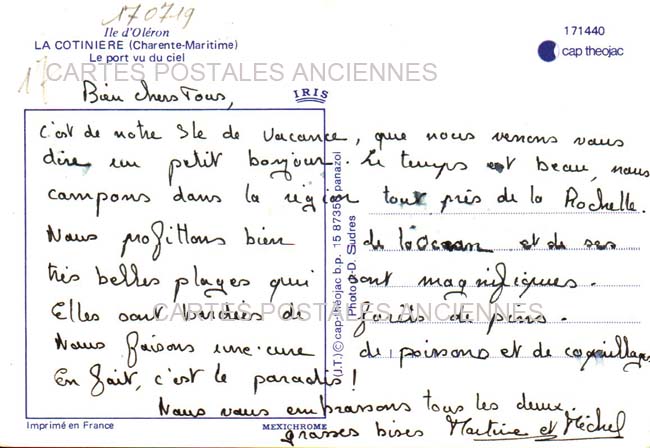 17 07 19
Ile d'Oléron
LA COTINIERE (Charente-Maritime)
Le port vu du ciel
171440
cap theojac
17
CARTES POSTALES ANCIENNES
IRIS
Bien chers Tous,
C'est de notre Ile de vacance, que nous venons vous
dire un petit bonjour. Le temps est beau, nous
campons dans la région tout près de la Rochelle.
Nous profittons bien de l'Ocean et de ses
très belles plages qui sont magnifiques.
Elles sont bordées de forêts de pins.
CARTES POSTALES ANCIENNES
Nous faisons une cure de poissons et de coquillages
En fait, c'est le paradis !
Nous vous embrassons tous les deux,
grosses bises Martine et Michel
(J.T.) © cap theojac b.p. 15 87350 panazol
Photo R-D. Sudres
Imprimé en France
MEXICHROME